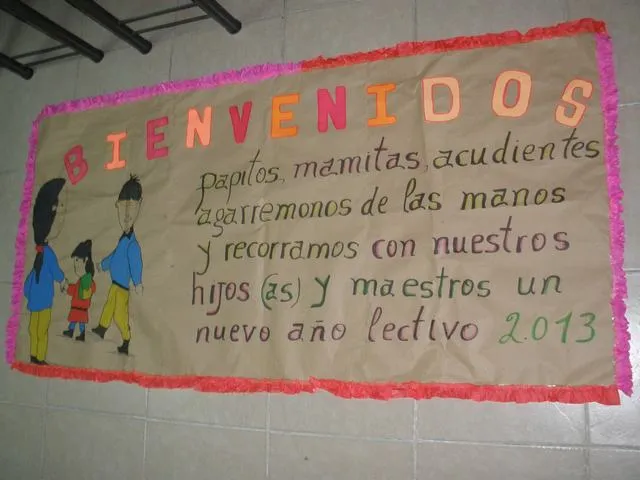 BIENVENIDOS
papitos, mamitas, acudientes
agarremonos de las manos
y recorramos con nuestros
hijos (as) y maestros un
nuevo año lectivo 2.013